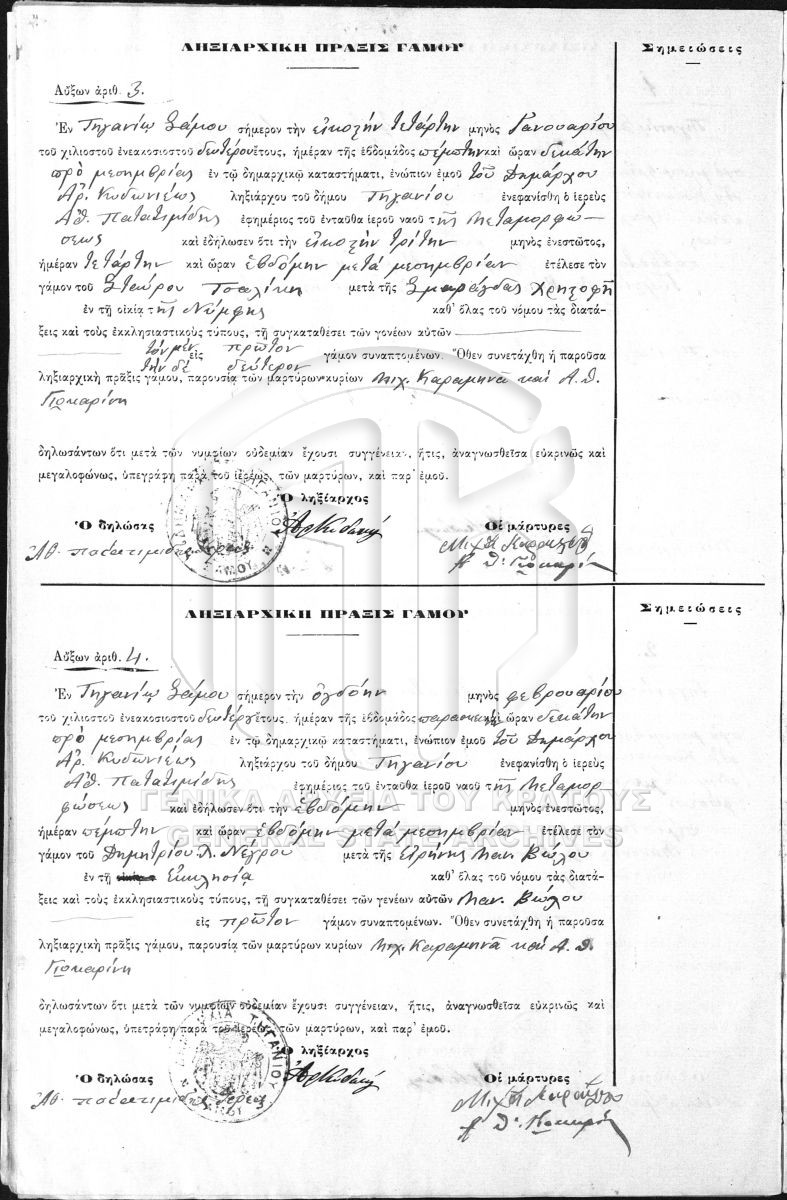 ΛΗΞΙΑΡΧΙΚΗ ΠΡΑΞΙΣ ΓΑΜΟΥ
Σημειώσεις
Αὔξων ἀριθ. 3.
Ἐν Τηγανίῳ Σάμου σήμερον τὴν εἰκοστὴν τετάρτην μηνὸς Ἰανουαρίου
τοῦ χιλιοστοῦ ἐνεακοσιοστοῦ δευτέρου ἔτους, ἡμέραν τῆς ἑβδομάδος πέμπτην καὶ ὥραν δεκάτην
πρὸ μεσημβρίας ἐν τῷ δημαρχικῷ καταστήματι, ἐνώπιον ἐμοῦ τοῦ Δημάρχου
Ἀρ. Κυδωνιέως ληξιάρχου τοῦ δήμου Τηγανίου ἐνεφανίσθη ὁ ἱερεὺς
Ἀθ. Παπατιμίδης ἐφημέριος τοῦ ἐνταῦθα ἱεροῦ ναοῦ τῆς Μεταμορφώ-
σεως καὶ ἐδήλωσεν ὅτι τὴν εἰκοστὴν τρίτην μηνὸς ἐνεστῶτος,
ἡμέραν τετάρτην καὶ ὥραν ἑβδόμην μετὰ μεσημβρίαν ἐτέλεσε τὸν
γάμον τοῦ Σταύρου μετὰ τῆς Σμαράγδας
ἐν τῇ οἰκίᾳ τῆς Νύμφης καθ' ὅλας τοῦ νόμου τὰς διατά-
ξεις καὶ τοὺς ἐκκλησιαστικοὺς τύπους, τῇ συγκαταθέσει τῶν γονέων αὐτῶν
τὸν μὲν εἰς πρῶτον γάμον συναπτομένων. Ὅθεν συνετάχθη ἡ παροῦσα
τὴν δὲ δεύτερον
ληξιαρχικὴ πρᾶξις γάμου, παρουσίᾳ τῶν μαρτύρων κυρίων Μιχ. Καραμηνᾶ καὶ Α. Θ.
Γιοκαρίνη
δηλωσάντων ὅτι μετὰ τῶν νυμφίων οὐδεμίαν ἔχουσι συγγένειαν, ἥτις, ἀναγνωσθεῖσα εὐκρινῶς καὶ
μεγαλοφώνως, ὑπεγράφη παρὰ τοῦ ἱερέως, τῶν μαρτύρων, καὶ παρ' ἐμοῦ.
Ὁ ληξίαρχος
Ὁ δηλώσας
Οἱ μάρτυρες
ΛΗΞΙΑΡΧΙΚΗ ΠΡΑΞΙΣ ΓΑΜΟΥ
Σημειώσεις
Αὔξων ἀριθ. 4.
Ἐν Τηγανίῳ Σάμου σήμερον τὴν ὀγδόην μηνὸς Φεβρουαρίου
τοῦ χιλιοστοῦ ἐνεακοσιοστοῦ δευτέρου ἔτους, ἡμέραν τῆς ἑβδομάδος παρασκευὴν καὶ ὥραν δεκάτην
πρὸ μεσημβρίας ἐν τῷ δημαρχικῷ καταστήματι, ἐνώπιον ἐμοῦ τοῦ Δημάρχου
Ἀρ. Κυδωνιέως ληξιάρχου τοῦ δήμου Τηγανίου ἐνεφανίσθη ὁ ἱερεὺς
Ἀθ. Παπατιμίδης ἐφημέριος τοῦ ἐνταῦθα ἱεροῦ ναοῦ τῆς Μεταμορ-
φώσεως καὶ ἐδήλωσεν ὅτι τὴν ἑβδόμην μηνὸς ἐνεστῶτος,
ΓΕΝΙΚΑ ΑΡΧΕΙΑ ΤΟΥ ΚΡΑΤΟΥΣ
GENERAL STATE ARCHIVES
ἡμέραν πέμπτην καὶ ὥραν ἑβδόμην μετὰ μεσημβρίαν ἐτέλεσε τὸν
γάμον τοῦ Δημητρίου Λ. Νέγρου μετὰ τῆς Εἰρήνης Μαν. Βώλου
ἐν τῇ Ἐκκλησίᾳ καθ' ὅλας τοῦ νόμου τὰς διατά-
ξεις καὶ τοὺς ἐκκλησιαστικοὺς τύπους, τῇ συγκαταθέσει τῶν γονέων αὐτῶν Μαν. Βώλου
εἰς πρῶτον γάμον συναπτομένων. Ὅθεν συνετάχθη ἡ παροῦσα
ληξιαρχικὴ πρᾶξις γάμου, παρουσίᾳ τῶν μαρτύρων κυρίων Μιχ. Καραμηνᾶ καὶ Α. Θ.
Γιοκαρίνη
δηλωσάντων ὅτι μετὰ τῶν νυμφίων οὐδεμίαν ἔχουσι συγγένειαν, ἥτις, ἀναγνωσθεῖσα εὐκρινῶς καὶ
μεγαλοφώνως, ὑπεγράφη παρὰ τοῦ ἱερέως, τῶν μαρτύρων, καὶ παρ' ἐμοῦ.
Ὁ ληξίαρχος
Ὁ δηλώσας
Οἱ μάρτυρες